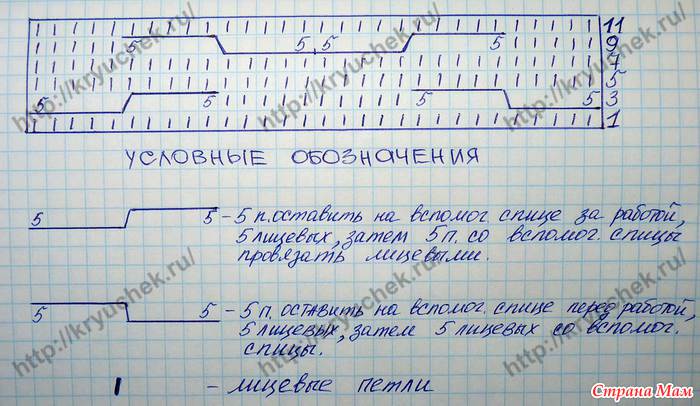 11
5 5,5 5 9
7
5
5 5 5 5 3
1
УСЛОВНЫЕ ОБОЗНАЧЕНИЯ
5 5 – 5 п. оставить на вспомог спице за работой,
5 лицевых, затем 5 п. со вспомог. спицы
провязать лицевыми.
5 5 – 5 п. оставить на вспомог. спице перед работой,
5 лицевых, затем 5 лицевых со вспомог.
спицы.
– лицевые петли
http://kryuchek.ru/
http://kryuchek.ru/
http://kryuchek.ru/
http://kryuchek.ru/
http://kryuchek.ru/
http://kryuchek.ru/
Страна Мам